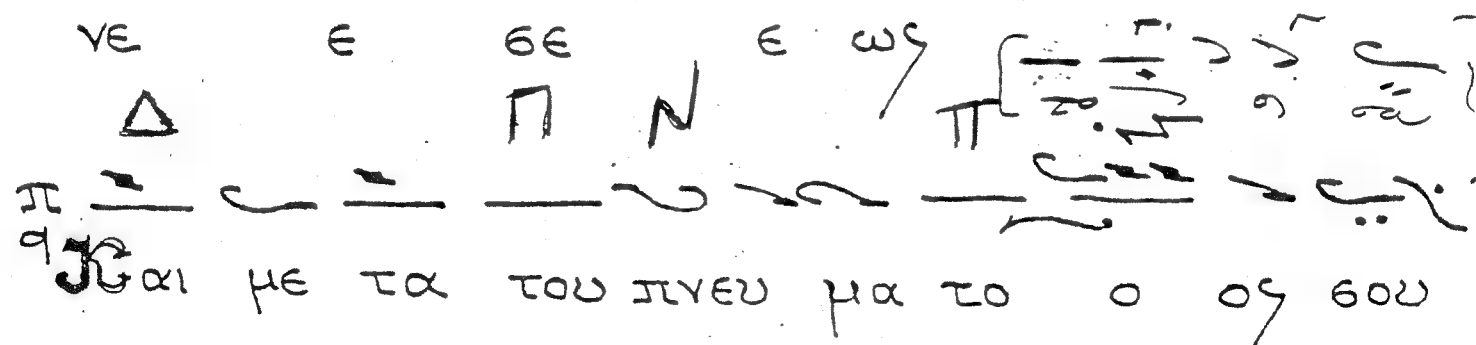 νε ε σε ε ως
Δ Π Ν Π
π
q Και με τα του πνευ μα το ο ος σου